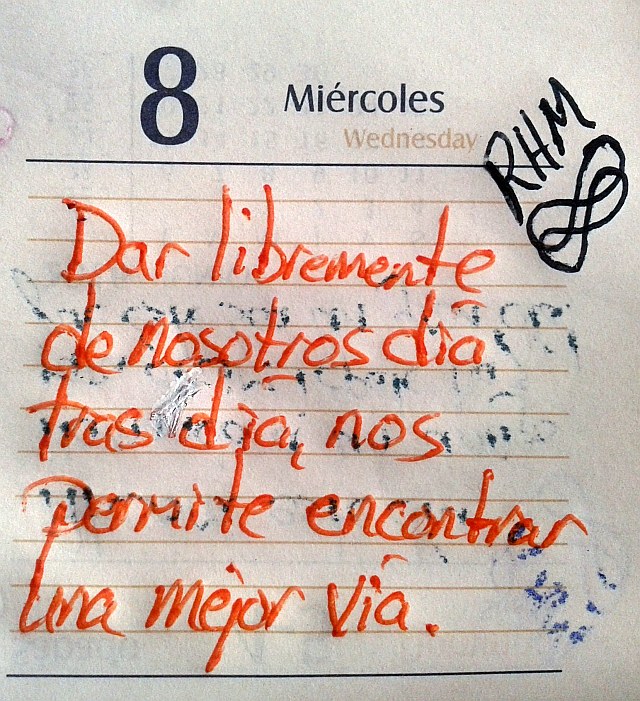 8 Miércoles
Wednesday
RHM
Dar libremente
de nosotros día
tras día, nos
permite encontrar
una mejor vía.